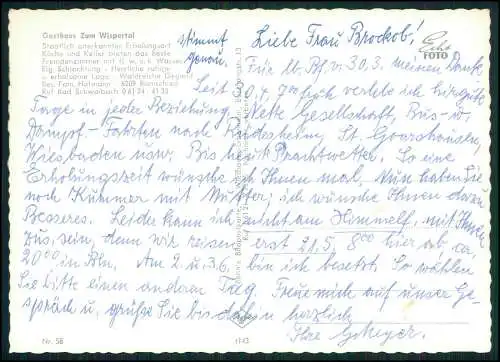 Gasthaus Zum Wispertal
Staatlich anerkannter Erholungsort
Küche und Keller bieten das Beste
Fremdenzimmer mit fl. w. u. k. Wasser
Eig. Schlachtung - Herrliche ruhige
u. erholsame Lage - Waldreiche Gegend
Bes. Fam. Hofmann 6209 Ramschied
Tel. Bad Schwalbach 0 61 24 - 41 33
stimmt
genau.
Echt
FOTO
Liebe Frau Brockob!
Für lb. Bf. v. 30.3. meinen Dank
Seit 04.70 hoch verlebe ich hier gute
Tage in jeder Beziehung. Nette Gesellschaft, Bus- u.
Dampf-Fahrten nach Rüdesheim, St. Goarshausen,
Wiesbaden usw. Bis heut Prachtwetter. So eine
Erholungszeit wünsche ich Ihnen mal. Nun haben Sie
noch Kummer mit Mutter; ich wünsche Ihnen dazu
Besseres. Leider kann ich nicht am mit Ihnen
zus. sein, denn wir reisen erst 21.5. 8⁰⁰ hier ab, ca.
20⁰⁰ in Bln. Am 2. u. 3.6. bin ich besetzt. So wählen
Sie bitte einen anderen Tag. Freue mich auf unser Ge-
spräch u. grüße Sie bis dahin herzlich
Ihre G. Meyer.
Nr. 58
1F43